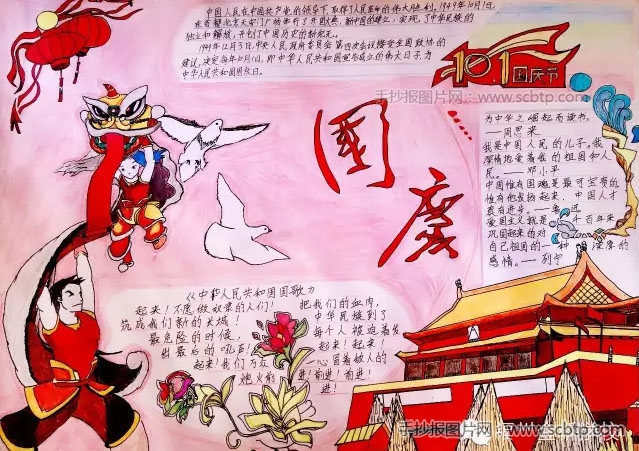 中国人民在中国共产党的领导下,取得了人民革命的伟大胜利,1949年10月1日
在首都北京天安门广场举行了开国大典,新中国的建立,实现了中华民族的
独立和解放,开创了中国历史的新纪元。
1949年12月3日,中央人民政府委员会第四次会议接受全国政协的
建议,决定每年10月1日,即中华人民共和国宣布成立的伟大日子为
中华人民共和国国庆日。
10.1国庆节
手抄报图片网:www.scbtp.com
国庆
为中华之崛起而读书。
——周恩来
我是中国人民的儿子。我
深情地爱着我的祖国和人
民。——邓小平
中国惟有国魂是最可宝贵的
惟有他发扬起来,中国人才
真有进步。——鲁迅
爱国主义就是千百年来
巩固起来的对
自己祖国的一种深厚的
感情。——列宁
《中华人民共和国国歌》
起来!不愿做奴隶的人们!
把我们的血肉,
筑成我们新的长城!
中华民族到了
最危险的时候,
每个人被迫着发
出最后的吼声!
起来!起来!
起来!我们万众
一心冒着敌人的
炮火前
进!前进!前进!
进!
手抄报图片网:www.scbtp.com